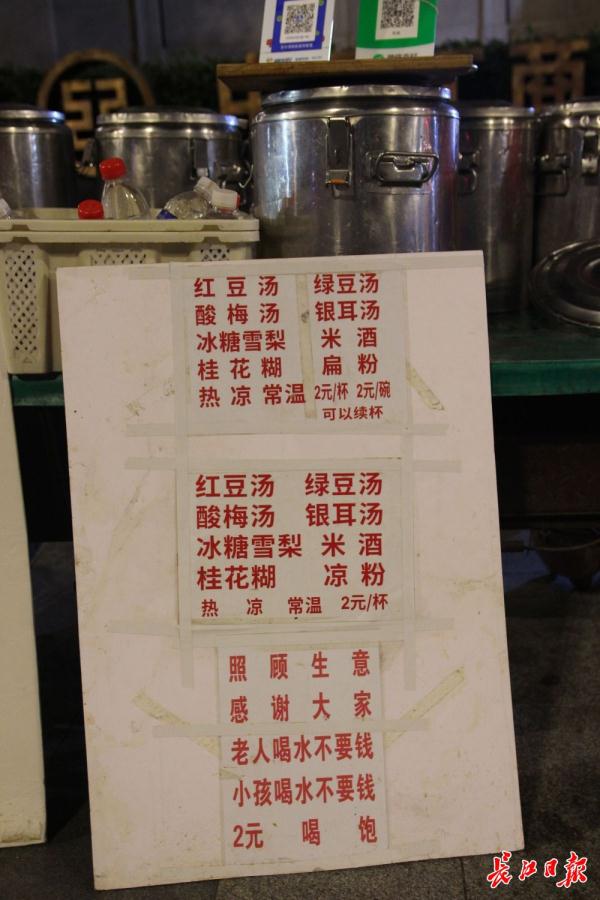 红豆汤 绿豆汤
酸梅汤 银耳汤
冰糖雪梨 米酒
桂花糊 扁粉
热 凉 常温 2元/杯 2元/碗
可以续杯
红豆汤 绿豆汤
酸梅汤 银耳汤
冰糖雪梨 米酒
桂花糊 凉粉
热 凉 常温 2元/杯
照顾生意
感谢大家
老人喝水不要钱
小孩喝水不要钱
2元 喝 饱
长江日报